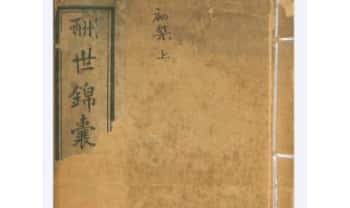 酬世錦囊
初集上